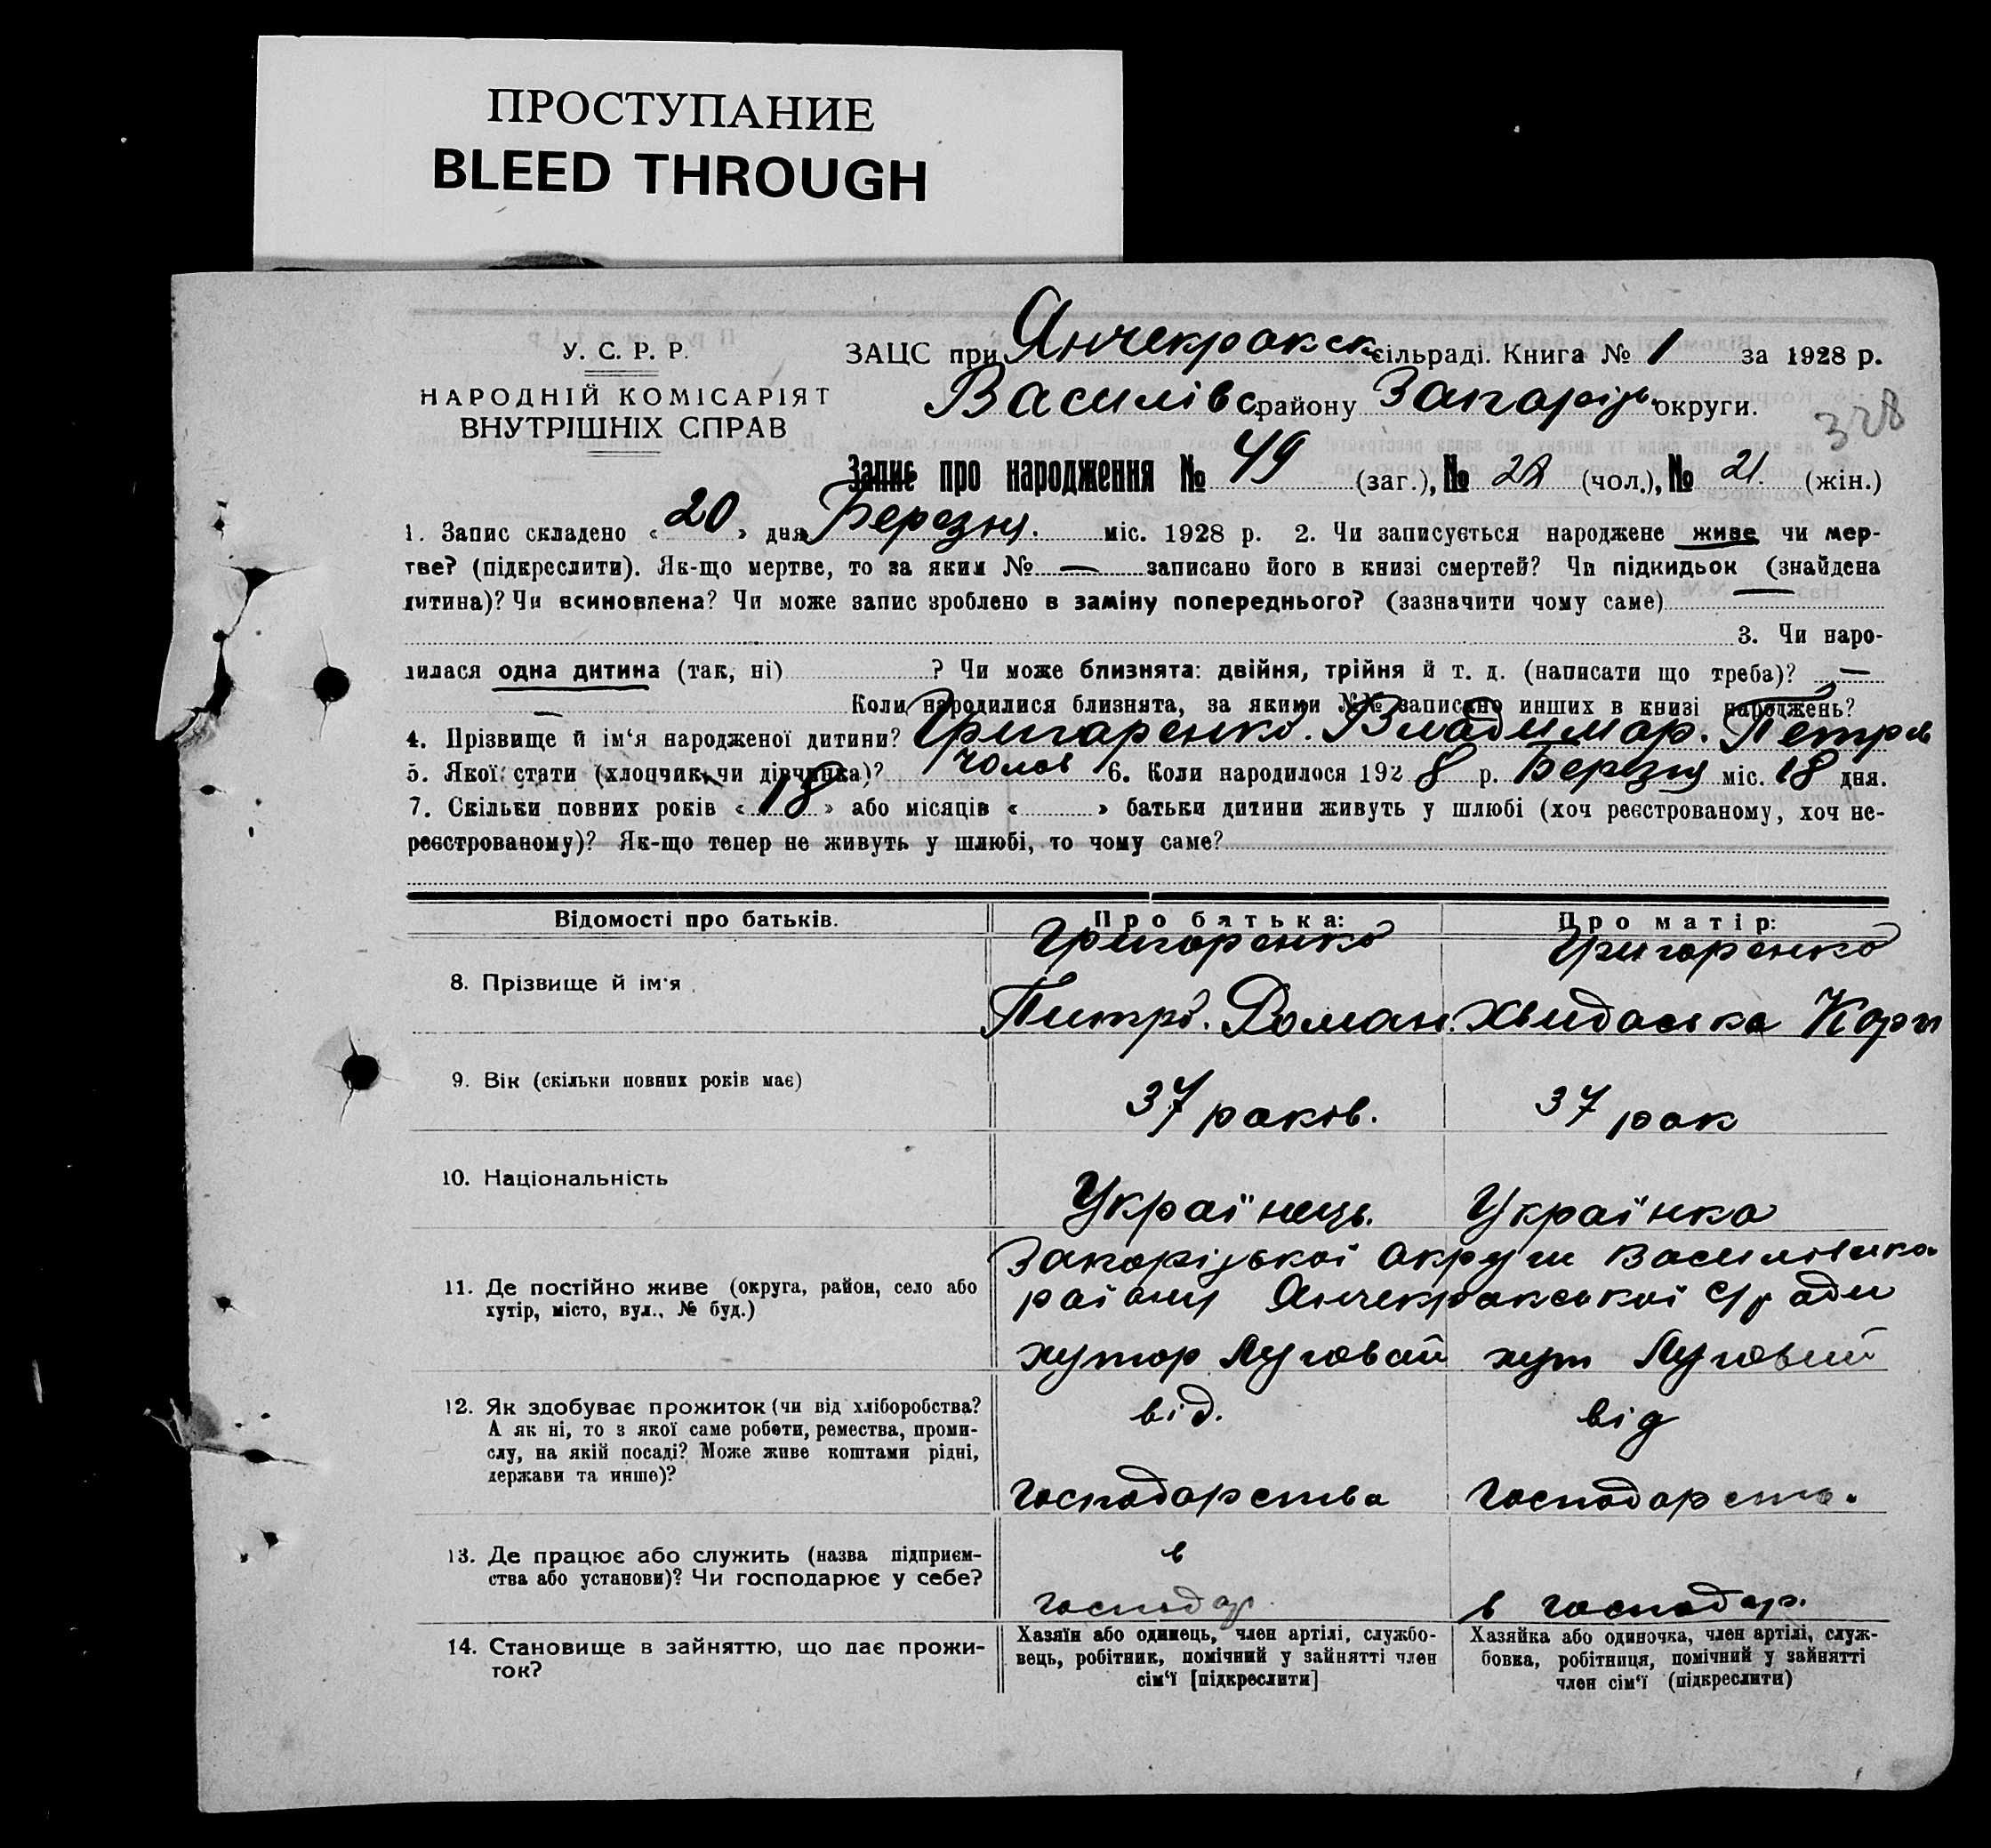 ПРОСТУПАНИЕ
BLEED THROUGH
У. С. Р. Р.
НАРОДНІЙ КОМІСАРІЯТ
ВНУТРІШНІХ СПРАВ
ЗАЦС при Янчекракск сільраді. Книга № 1 за 1928 р.
Василівс району Запоріз. округи.
328
Запис про народження № 49 (заг.), № 28 (чол.), № 21. (жін.)
1. Запис складено « 20 » дня Березня. міс. 1928 р. 2. Чи записується народжене живе чи мер-
тве? (підкреслити). Як-що мертве, то за яким № — записано його в книзі смертей? Чи підкидьок (знайдена
дитина)? Чи всиновлена? Чи може запис зроблено в заміну попереднього? (зазначити чому саме) —
3. Чи наро-
дилася одна дитина (так, ні) ? Чи може близнята: двійня, трійня й т. д. (написати що треба)? —
— Коли народилися близнята, за якими №№ записано инших в книзі народжень?
4. Прізвище й ім‘я народженої дитини? Григаренко. Владимар. Петров
5. Якої стати (хлопчик чи дівчинка)? чолов 6. Коли народилося 1928 р. Березня міс. 18 дня.
7. Скільки повних років « 18 » або місяців « » батьки дитини живуть у шлюбі (хоч реєстрованому, хоч не-
реєстрованому)? Як-що тепер не живуть у шлюбі, то чому саме?
Відомості про батьків. Про батька: Про матір:
Григоренко Григоренко
8. Прізвище й ім‘я
Питро. Роман. Хвидоська Карп
9. Вік (скільки повних років має)
37 раков. 37 рак
10. Національність
Украї нець. Украї нка
Запорізької Округи Василівска
11. Де постійно живе (округа, район, село або
хутір, місто, вул., № буд.)
раіону Янчекракської С/ради
хутор Луговай хут Луговий
12. Як здобуває прожиток (чи від хліборобства?
А як ні, то з якої саме роботи, ремества, проми-
слу, на якій посаді? Може живе коштами рідні,
держави та инше)?
від. від
господарства господарств.
13. Де працює або служить (назва підприєм-
ства або установи)? Чи господарює у себе?
в
господар. в господар.
14. Становище в зайняттю, що дає прожи-
ток?
Хазяїн або одинець, член артілі, службо-
вець, робітник, помічний у зайнятті член
сім‘ї [підкреслити]
Хазяйка або одиночка, член артілі, служ-
бовка, робітниця, помічний у зайнятті
член сім‘ї (підкреслити)